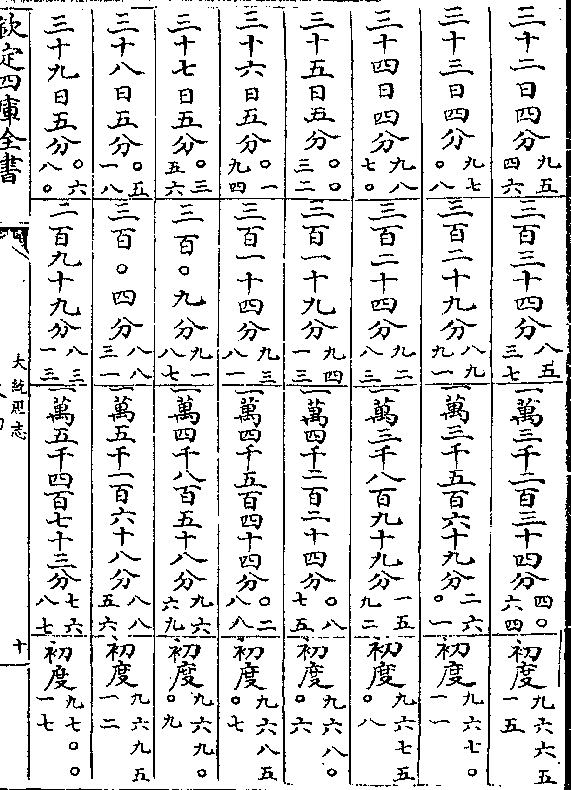 三十二日四分九五四六 三百三十四分八五三七 一萬三千二百三十四分四〇六四 初度九六六五一五
三十三日四分九七〇八 三百二十九分八九九一 一萬三千五百六十九分二六〇一 初度九六七〇一一
三十四日四分九八七〇 三百二十四分九二八三 一萬三千八百九十九分一五九二 初度九六七五〇八
三十五日五分〇〇三二 三百一十九分九四一三 一萬四千二百二十四分〇八七五 初度九六八〇〇六
三十六日五分〇一九四 三百一十四分九三八一 一萬四千五百四十四分〇二八八 初度九六八五〇七
三十七日五分〇三五六 三百〇九分九一八七 一萬四千八百五十八分九六六九 初度九六九〇〇九
三十八日五分〇五一八 三百〇四分八八三一 一萬五千一百六十八分八八五六 初度九六九五一二
三十九日五分〇六八〇 二百九十九分八三一三 一萬五千四百七十三分七六八七 初度九七〇〇一七
欽定四庫全書
大統厯志
十